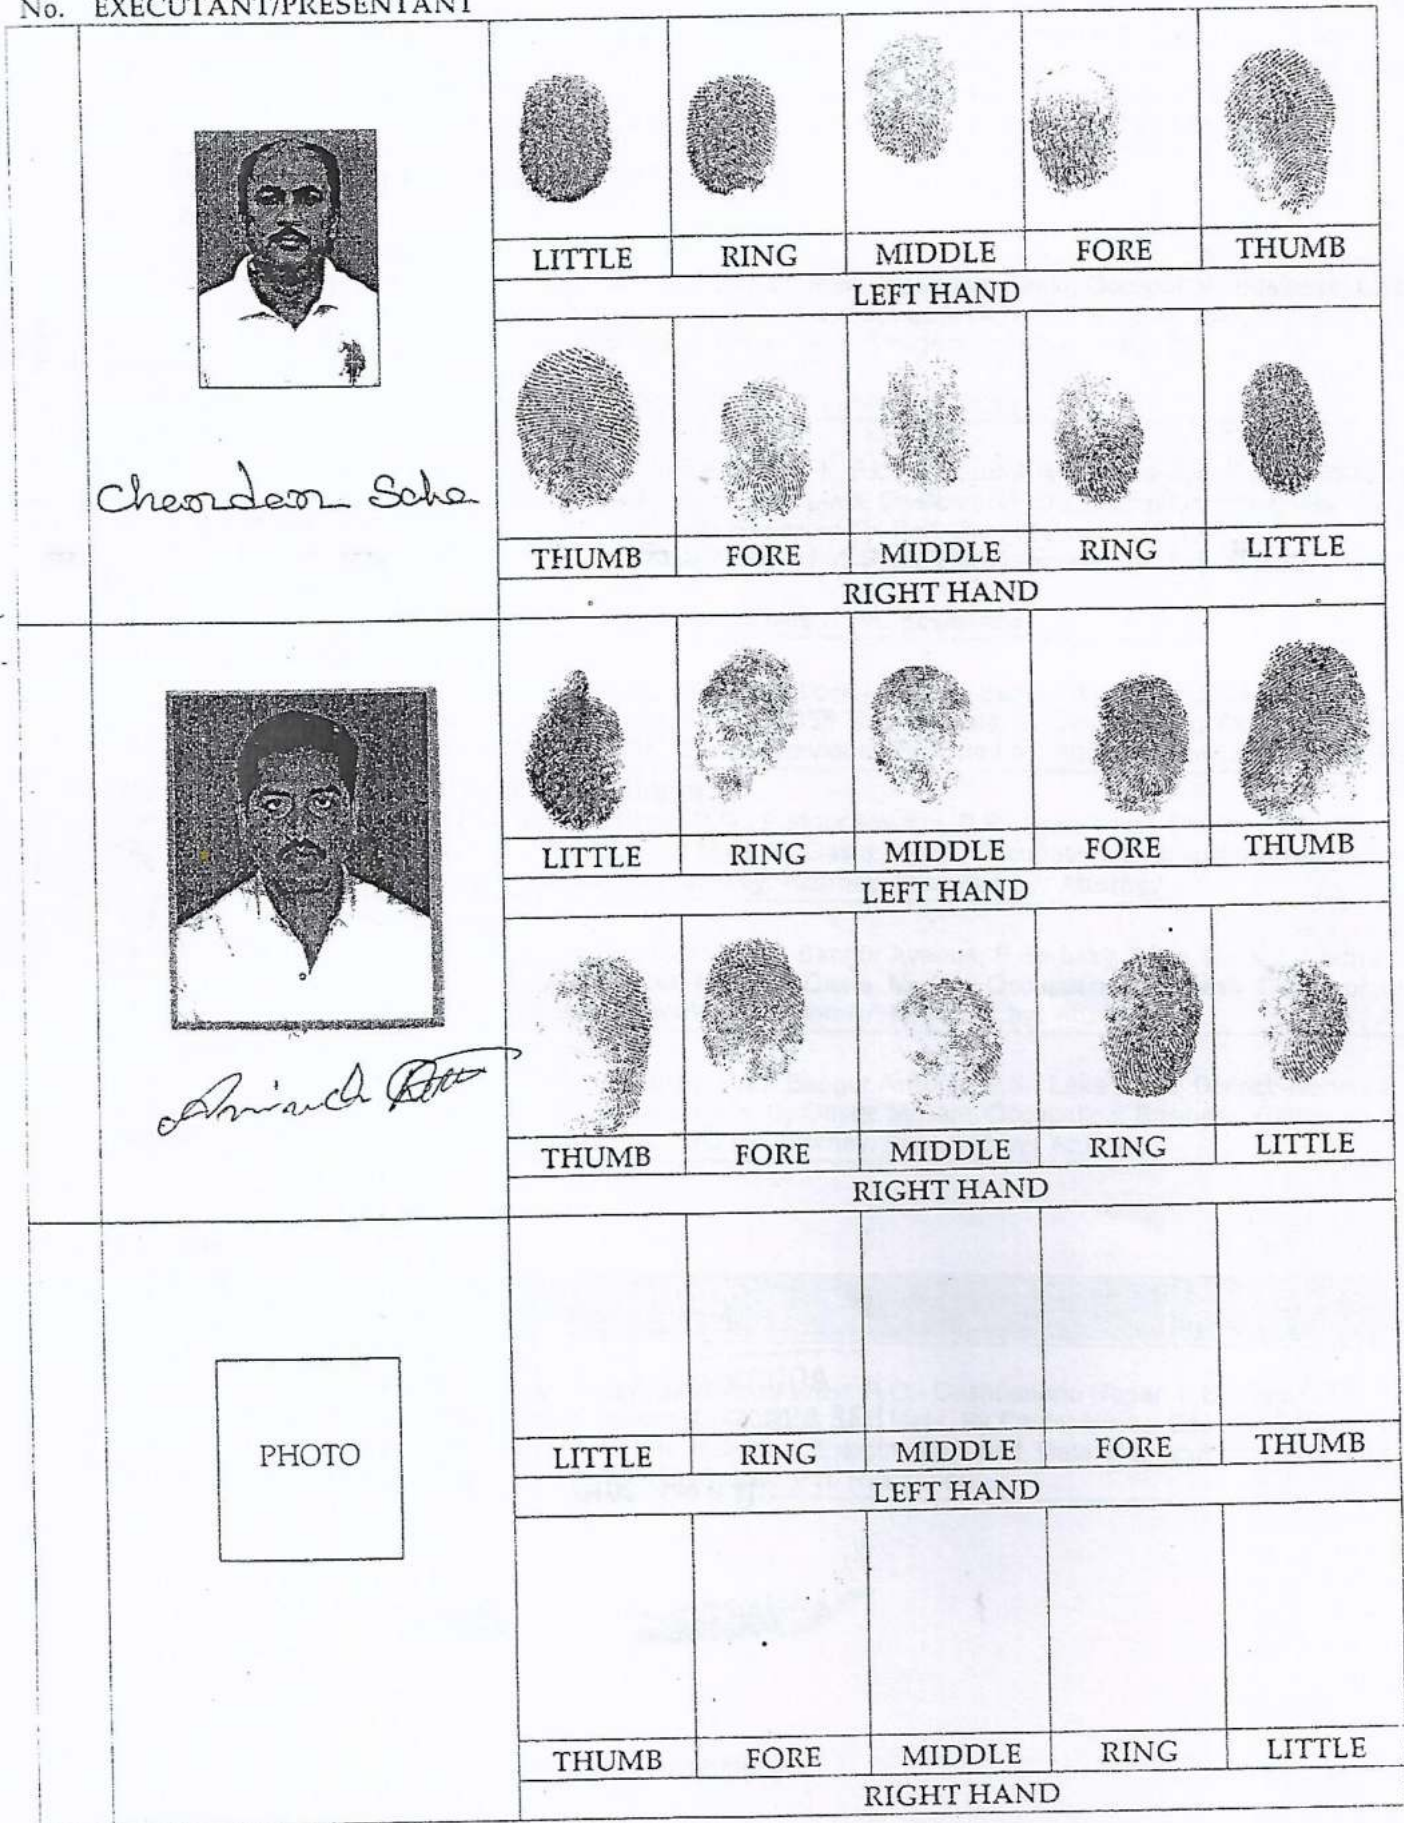 No. EXECUTANT/PRESENTANT
LITTLE RING MIDDLE FORE THUMB
LEFT HAND
Chandan Saha
THUMB FORE MIDDLE RING LITTLE
RIGHT HAND
LITTLE RING MIDDLE FORE THUMB
LEFT HAND
THUMB FORE MIDDLE RING LITTLE
RIGHT HAND
PHOTO
LITTLE RING MIDDLE FORE THUMB
LEFT HAND
THUMB FORE MIDDLE RING LITTLE
RIGHT HAND